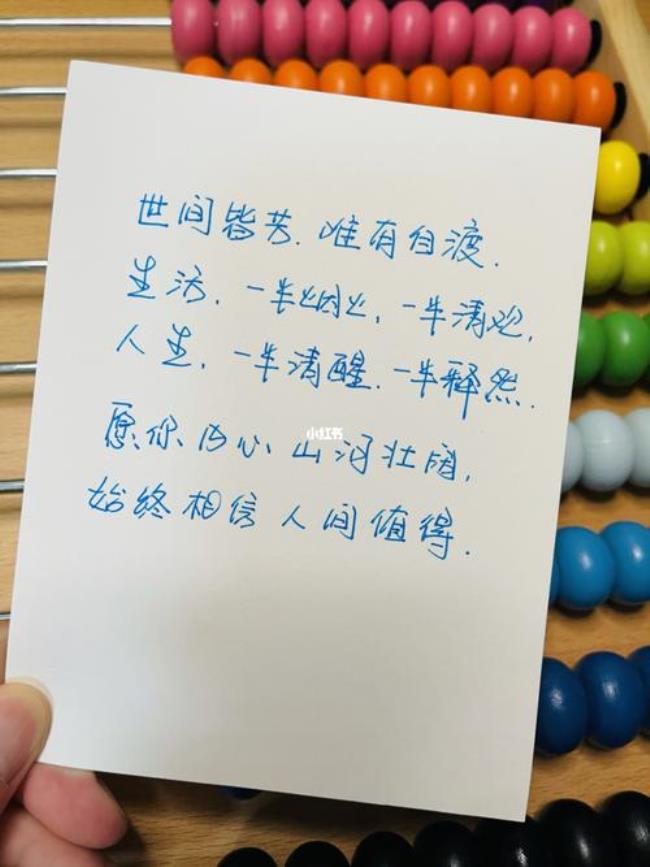 世间皆苦.唯有自渡.
生活.一半烟火,一半清欢,
人生.一半清醒.一半释然.
愿你内心山河壮阔,
始终相信人间值得.
小红书